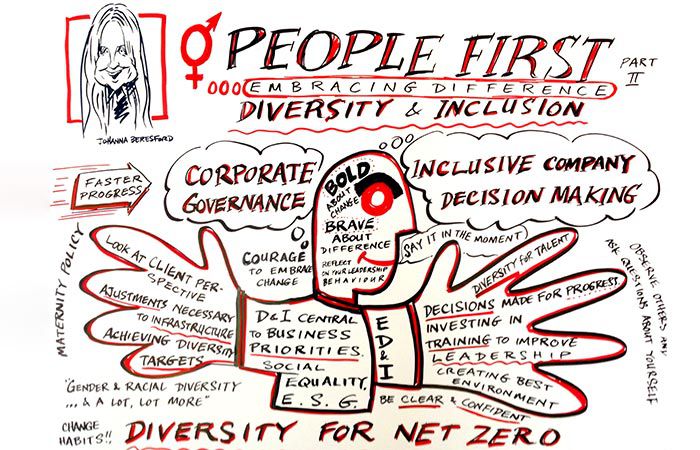 PEOPLE FIRST
PART
II
EMBRACING DIFFERENCE
DIVERSITY & INCLUSION
JOHANNA BERESFORD
FASTER
PROGRESS
CORPORATE
GOVERNANCE
INCLUSIVE COMPANY
DECISION MAKING
BOLD
ABOUT
CHANGE
BRAVE
ABOUT
DIFFERENCE
REFLECT
ON YOUR LEADERSHIP
BEHAVIOUR
SAY IT IN THE MOMENT
COURAGE
TO EMBRACE
CHANGE
MATERNITY POLICY
LOOK AT CLIENT PER-
SPECTIVE
AJUSTMENTS NECESSARY
TO INFRASTRUCTURE
ACHIEVING DIVERSITY
TARGETS
D&I CENTRAL
TO BUSINESS
PRIORITIES.
SOCIAL
EQUALITY,
E. S. G.
ED&I
DIVERSITY FOR TALENT
DECISIONS MADE FOR PROGRESS
INVESTING IN
TRAINING TO IMPROVE
LEADERSHIP
CREATING BEST
ENVIRONMENT
BE CLEAR & CONFIDENT
OBSERVE OTHERS AND
ASK QUESTIONS ABOUT YOURSELF
"GENDER & RACIAL DIVERSITY
... & A LOT, LOT MORE"
CHANGE
HABITS!!
DIVERSITY FOR NET ZERO